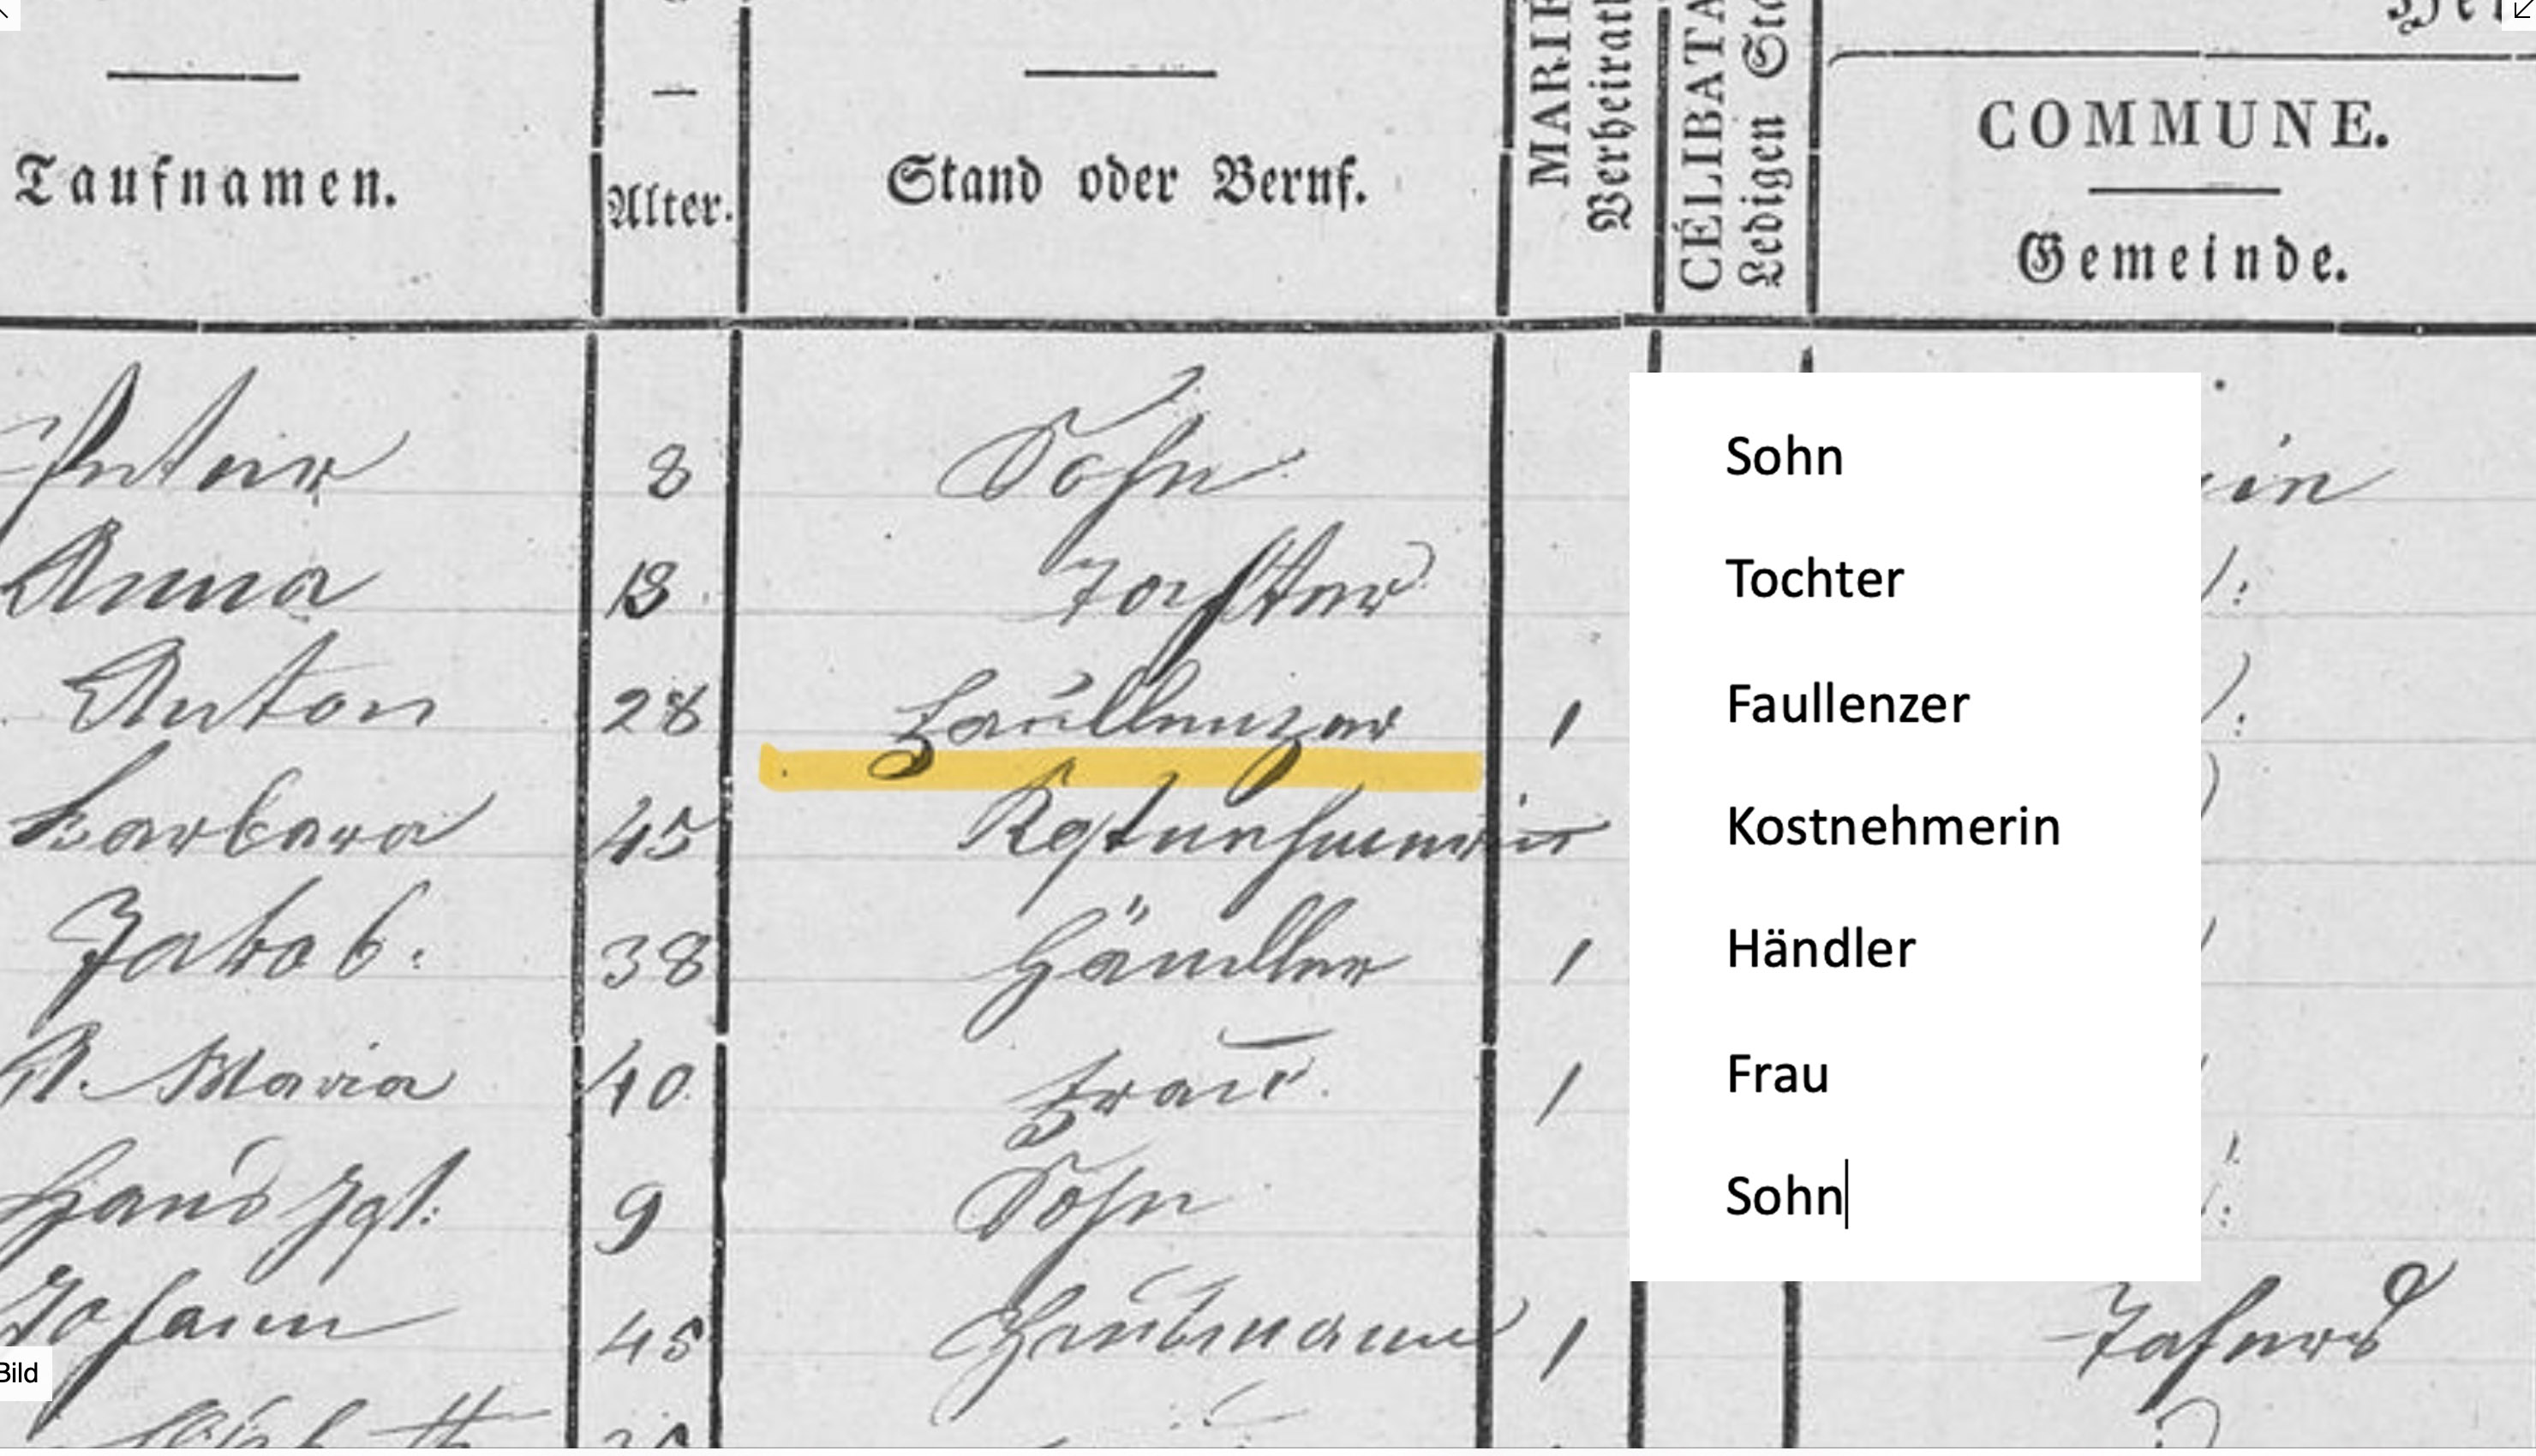 MARIÉ
Verheirath
CÉLIBATA
Ledigen Sta
Taufnamen.
Alter.
Stand oder Beruf.
COMMUNE.
Gemeinde.
8 Sohn
Anna 13 Tochter
Anton 28 Faullenzer 1
Barbara 45 Kostnehmerin
Jakob. 38 Händler 1
A. Maria 40 Frau 1
Hans 9 Sohn
Johann 45 1 Tafers
Sohn
Tochter
Faullenzer
Kostnehmerin
Händler
Frau
Sohn
Bild